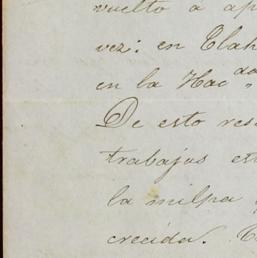 vuelto a ap
vez: en Clah
en la Hac da „
De esto res
trabajos est
la milpa
crecida.